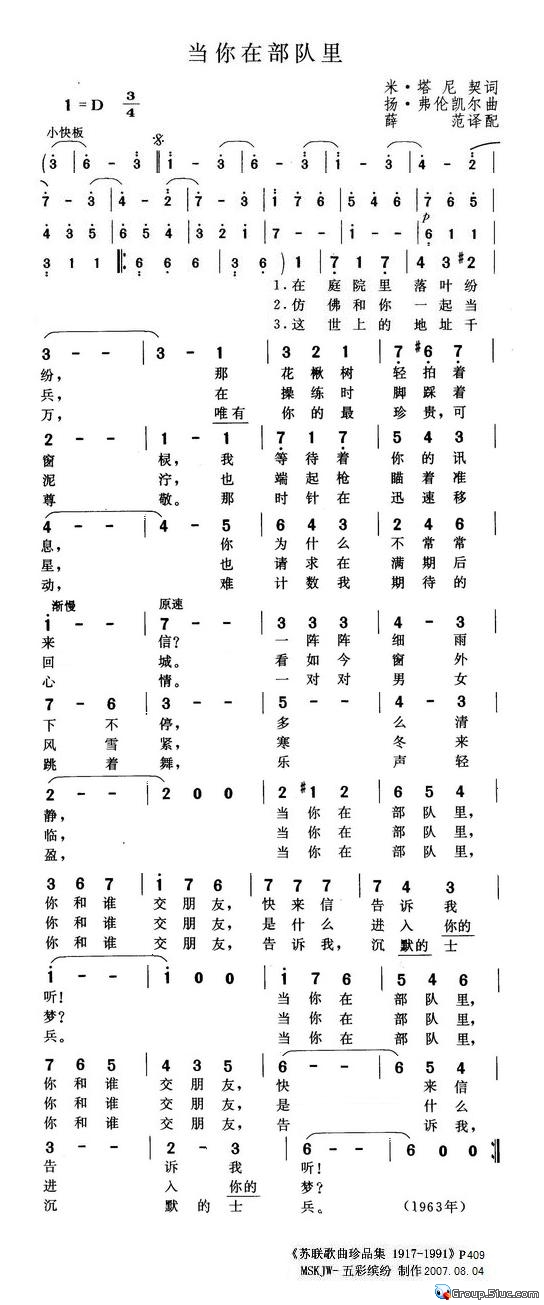 当你在部队里
米·塔尼契词
1=D 3/4
扬·弗伦凯尔曲
薛 范译配
小快板
(3 | 6 - 3 ‖ 1 - 3 | 6 - 1 | 3 - 3 | 4 - 2 |
7 - 3 | 4 - 2 | 7 - 3 | 1 7 6 | 5 4 6 | 7 6 5 |
4 3 5 | 6 5 4 | 3 2 1 | 7 - - | 1 - - | 6 1 1 |
p
3 1 1 ‖: 6 6 6 | 3 6 ) 1 | 7 1 7 | 4 3 #2 |
1.在 庭院里 落叶纷
2.仿 佛和你 一起当
3.这 世上的 地址千
3 - - | 3 - 1 | 3 2 1 | 7 #6 7 |
纷, 那 花楸树 轻拍着
兵, 在 操练时 脚踩着
万, 唯有 你的最 珍贵,可
2 - - | 1 - 1 | 7 1 7 | 5 4 3 |
窗 棂,我 等待着 你的讯
泥 泞,也 端起枪 瞄着准
尊 敬。那 时针在 迅速移
4 - - | 4 - 5 | 6 4 3 | 2 4 6 |
息, 你 为什么 不常常
星, 也 请求在 满期后
动, 难 计数我 期待的
渐慢 原速
1 - - | 7 - - | 3 3 3 | 4 - 3 |
来 信? 一阵阵 细雨
回 城。 看如今 窗外
心 情。 一对对 男女
7 - 6 | 3 - - | 5 - - | 4 - 3 |
下不 停, 多 么清
风雪 紧, 寒 冬来
跳着 舞, 乐 声轻
2 - - | 2 0 0 | 2 #1 2 | 6 5 4 |
静, 当你在 部队里,
临, 当你在 部队里,
盈, 当你在 部队里,
3 6 7 | 1 7 6 | 7 7 7 | 7 4 3 |
你和谁 交朋友, 快来信 告诉我
你和谁 交朋友, 是什么 进入你的
你和谁 交朋友, 告诉我, 沉默的士
1 - - | 1 0 0 | 1 7 6 | 5 4 6 |
听! 当你在 部队里,
梦? 当你在 部队里,
兵。 当你在 部队里,
7 6 5 | 4 3 5 | 6 - - | 6 5 4 |
你和谁 交朋友, 快 来信
你和谁 交朋友, 是 什么
你和谁 交朋友, 告 诉我,
3 - - | 2 - 3 | 6 - - | 6 0 0 :‖
告 诉我 听!
进 入你的 梦?
沉 默的士 兵。 (1963年)
《苏联歌曲珍品集 1917-1991》P409
MSKJW-五彩缤纷 制作2007.08.04
Group.51uc.com